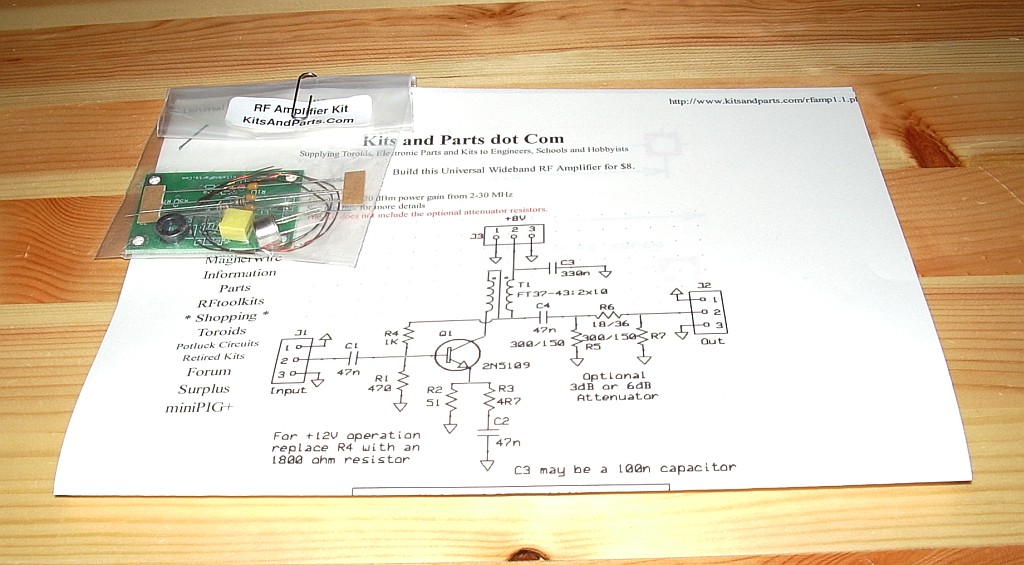 RF Amplifier Kit
KitsAndParts.Com
http://www.kitsandparts.com/rfamp1.1.pl
Kits and Parts dot Com
Supplying Toroids, Electronic Parts and Kits to Engineers, Schools and Hobbyists
Build this Universal Wideband RF Amplifier for $8.
dBm power gain from 2-30 MHz
for more details
does not include the optional attenuator resistors.
MagnetWire
Information
Parts
RFtoolkits
* Shopping *
Toroids
Potluck Circuits
Retired Kits
Forum
Surplus
miniPIG+
+8V
J3
1 2 3
C3
330n
T1
FT37-43:2x10
J2
1
2
3
Out
C4
47n
R6
18/36
300/150
R5
300/150
R7
Optional
3dB or 6dB
Attenuator
J1
1
2
3
Input
C1
47n
R4
1K
R1
470
Q1
2N5109
R2
51
R3
4R7
C2
47n
For +12V operation
replace R4 with an
1800 ohm resistor
C3 may be a 100n capacitor